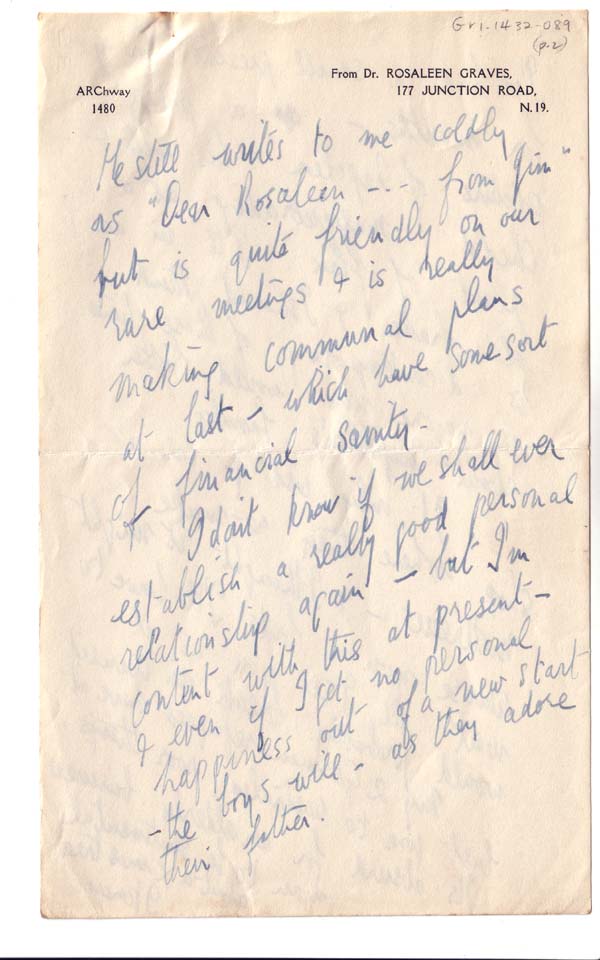 Gr1-1432-089
(p.2)
From Dr. ROSALEEN GRAVES,
177 JUNCTION ROAD,
N.19.
ARChway
1480
He still writes to me coldly
as "Dear Rosaleen --- from Jim"
but is quite friendly on our
rare meetings & is really
making communal plans
at last - which have some sort
of financial sanity.
& I don't know if we shall ever
establish a really good personal
relationship again - but I'm
content with this at present -
& even if I get no personal
happiness out of a new start
- the boys will - as they adore
their father.